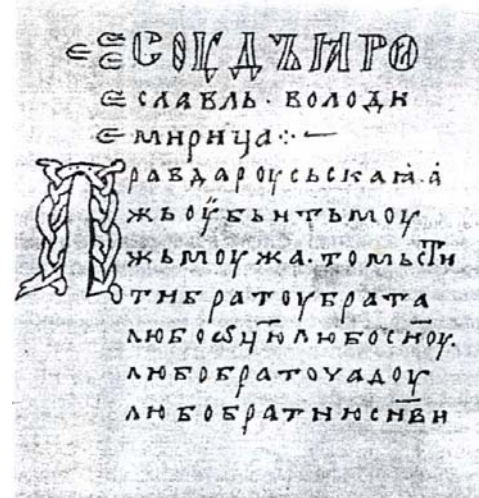 СОУДЪꙖРО
славль · володи
мирича ⁘ —
Правдароусьскаꙗ · а
жьоубьитьмоу
жьмоужа · томьсти
тибратоубрата
любоѡц҃юлюбосн҃оу ·
любобратоучадоу
любобратнюсн҃ви